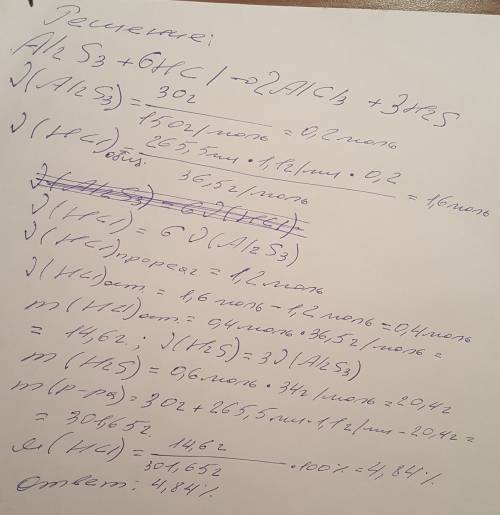 Решение:
Al2S3 + 6HCl → 2AlCl3 + 3H2S
ν(Al2S3) = 30г / 150г/моль = 0,2моль
ν(HCl)общ. = 265,5мл · 1,1г/мл · 0,2 / 36,5г/моль = 1,6моль
ν(Al2S3) = 6ν(HCl)
ν(HCl) = 6ν(Al2S3)
ν(HCl)прореаг = 1,2моль
ν(HCl)ост. = 1,6моль - 1,2моль = 0,4моль
m(HCl)ост. = 0,4моль · 36,5г/моль =
= 14,6г; ν(H2S) = 3ν(Al2S3)
m(H2S) = 0,6моль · 34г/моль = 20,4г
m(р-ра) = 30г + 265,5мл · 1,1г/мл - 20,4г =
= 301,65г
ω(HCl) = 14,6г / 301,65г · 100% = 4,84%
Ответ: 4,84%